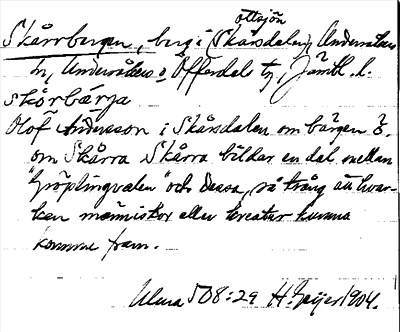 ottsjön
Skårrbergen, berg i (Skårsdalen), Undersåkers
sn, Undersåkers o Offerdals tg, Jämtl. l.
skǒrbærja
Olof Andersson i Skårsdalen om bärgen ö.
om Skårra Skårra bildar en dal mellan
"Gröplingvalen" och dessa, så trång att hvar-
ken människor eller kreatur kunna
komma fram.
Ulma 508:29 H. Geijer 1904.